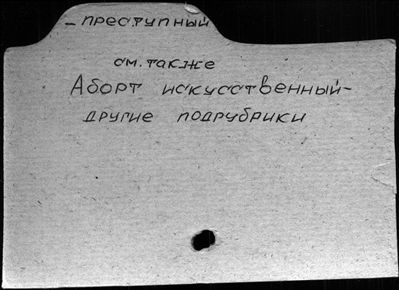 – преступный
см. также
Аборт искусственный-
другие подрубрики